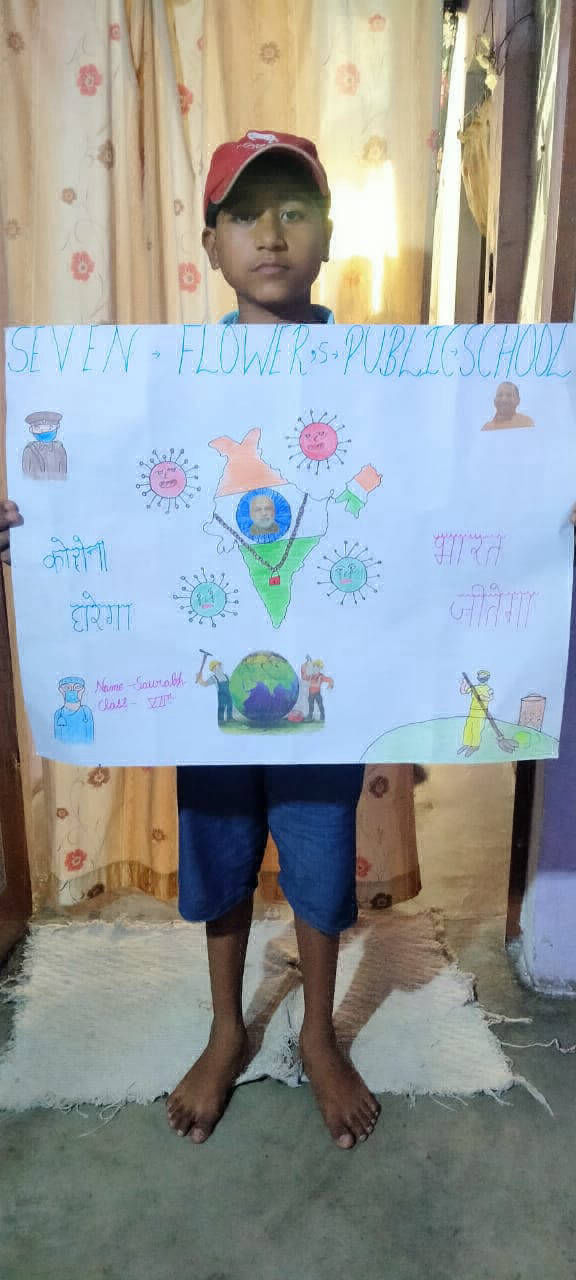 SEVEN - FLOWER,S - PUBLIC - SCHOOL
कोरोना
हारेगा
भारत
जीतेगा
Name - Saurabh
Class - VIIth